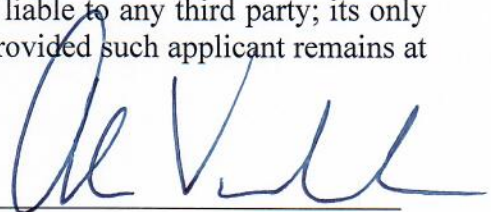 liable to any third party; its only
rovided such applicant remains at